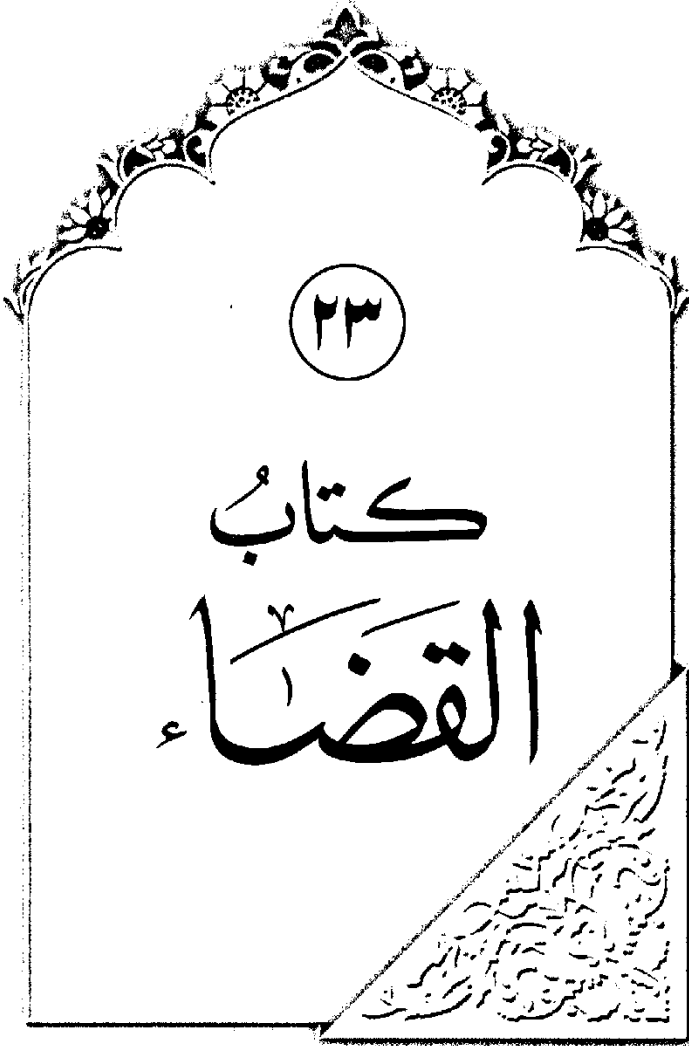 ٢٣
كتابُ
القضاء